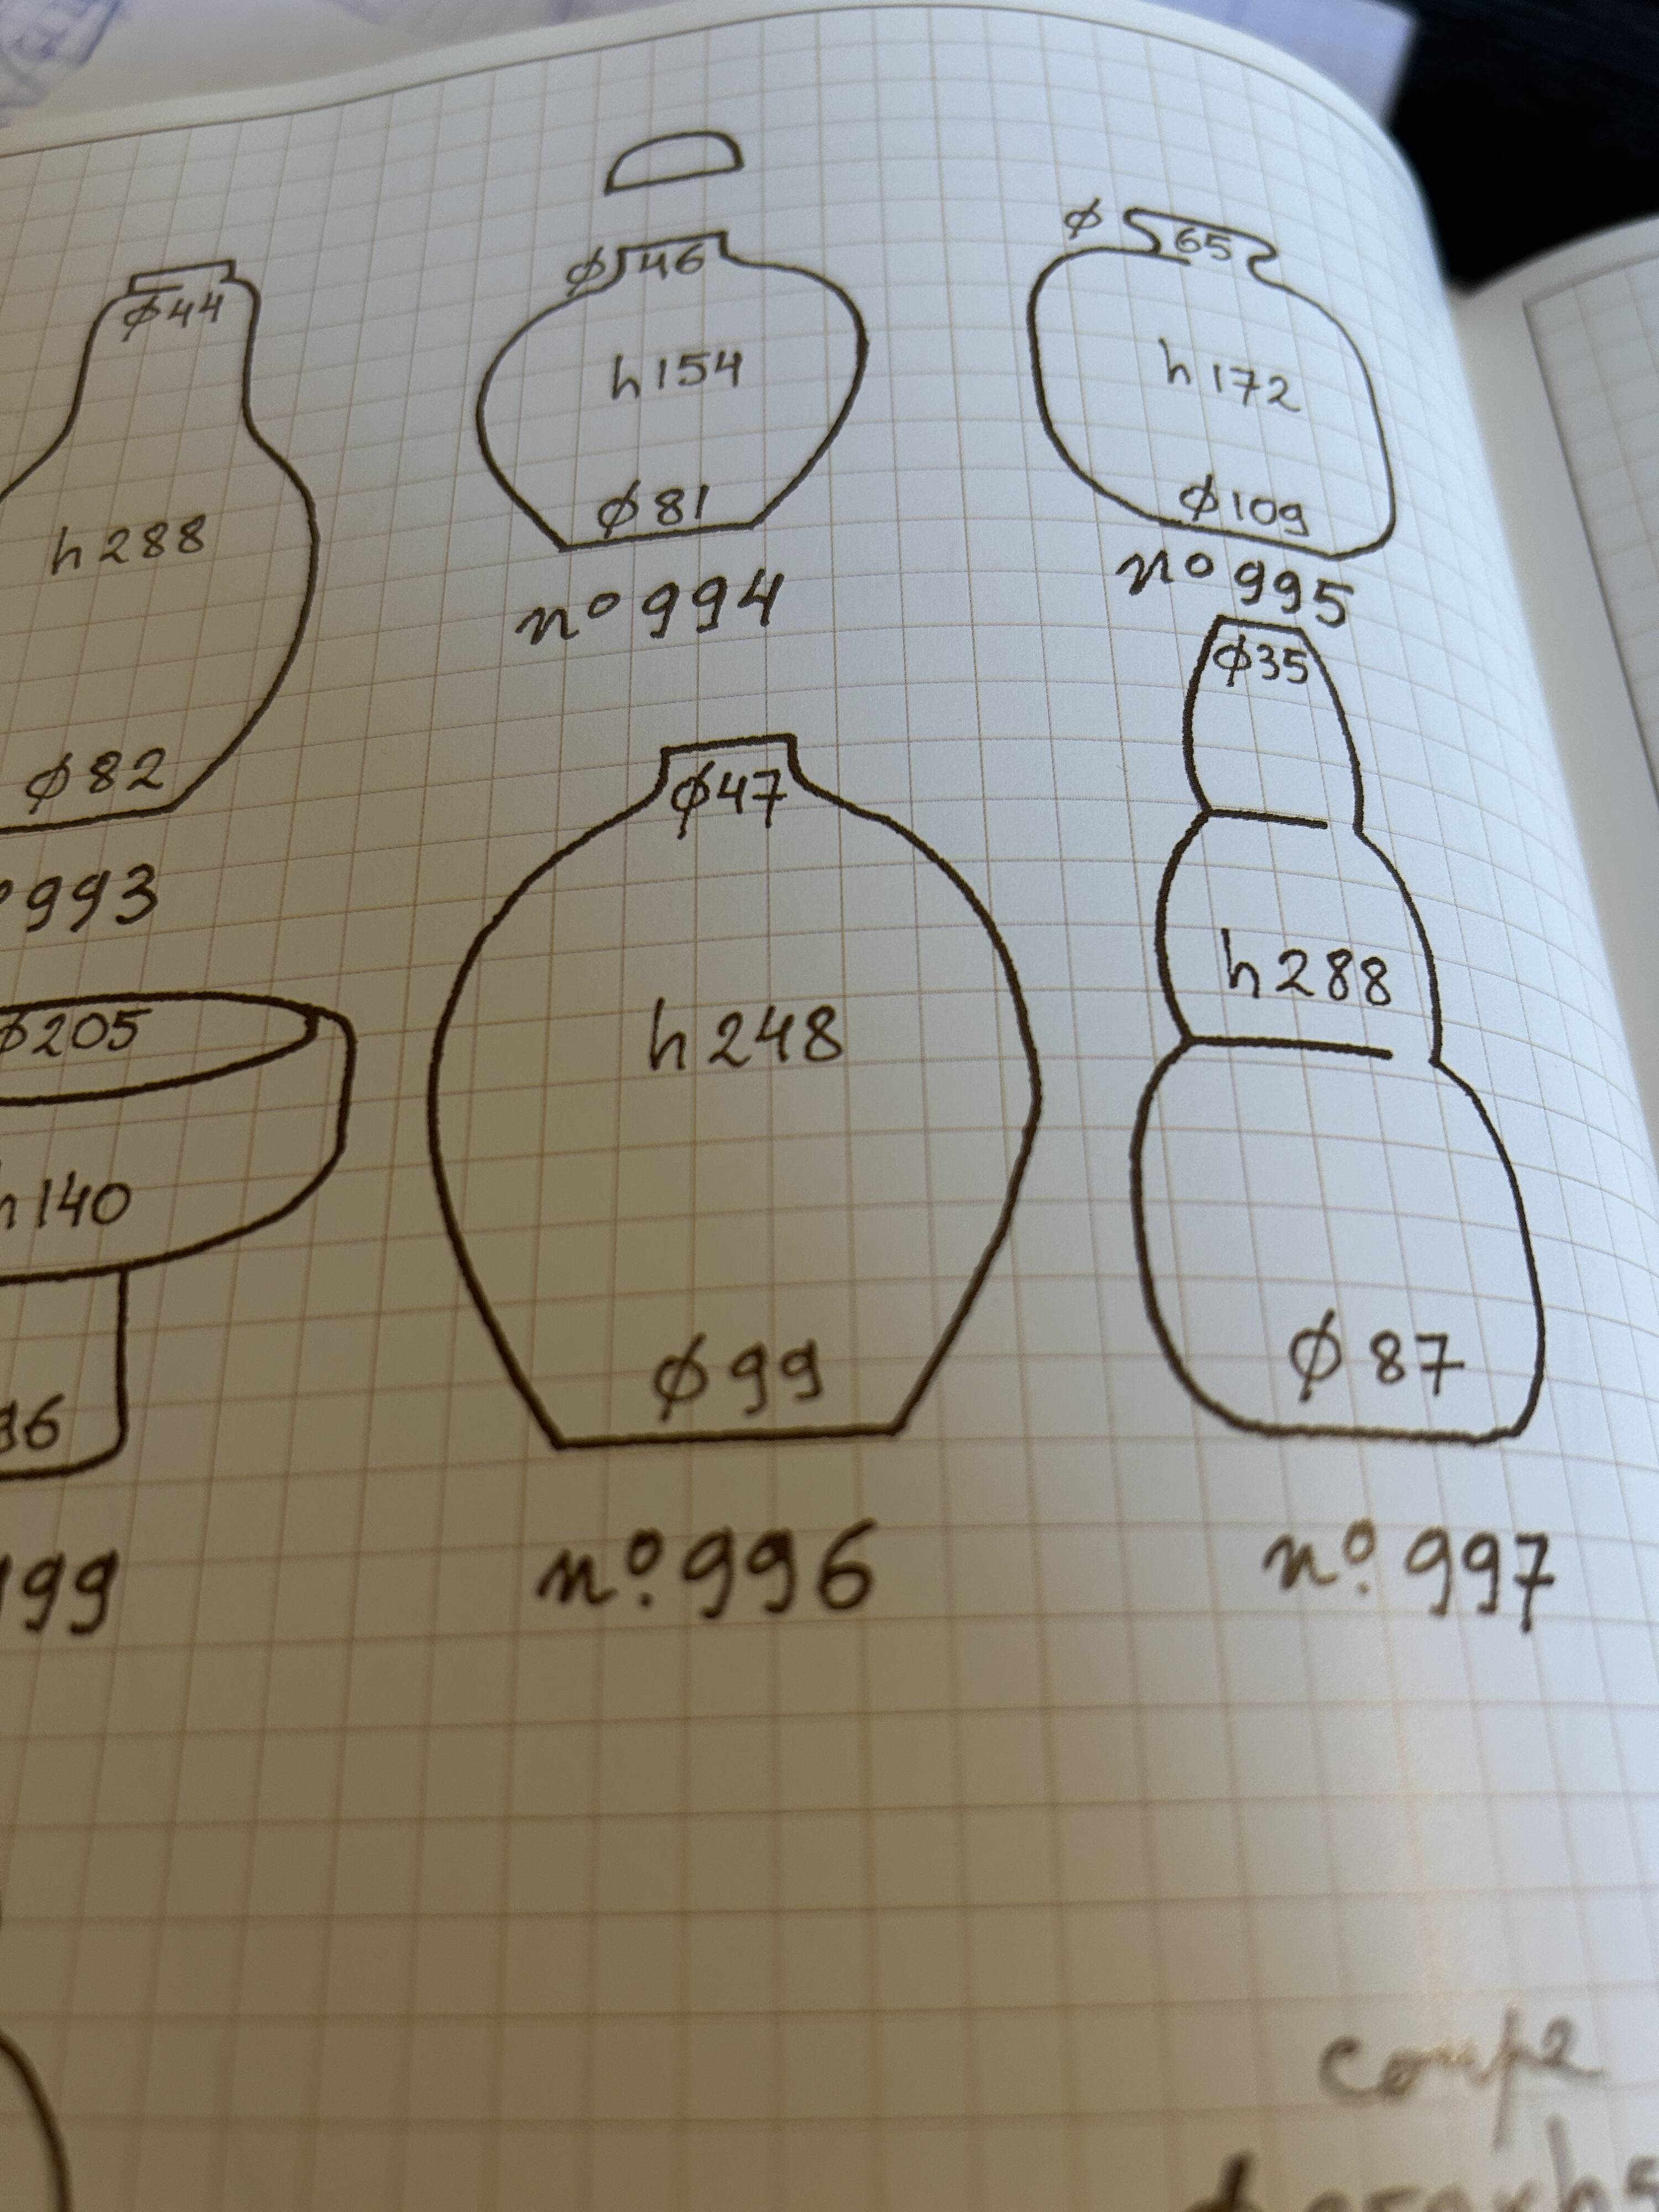 φ44
h288
φ82
993
φ46
h154
φ81
nº994
φ65
h172
φ109
nº995
φ205
h140
36
99
φ47
h248
φ99
nº.996
φ35
h288
φ87
nº.997